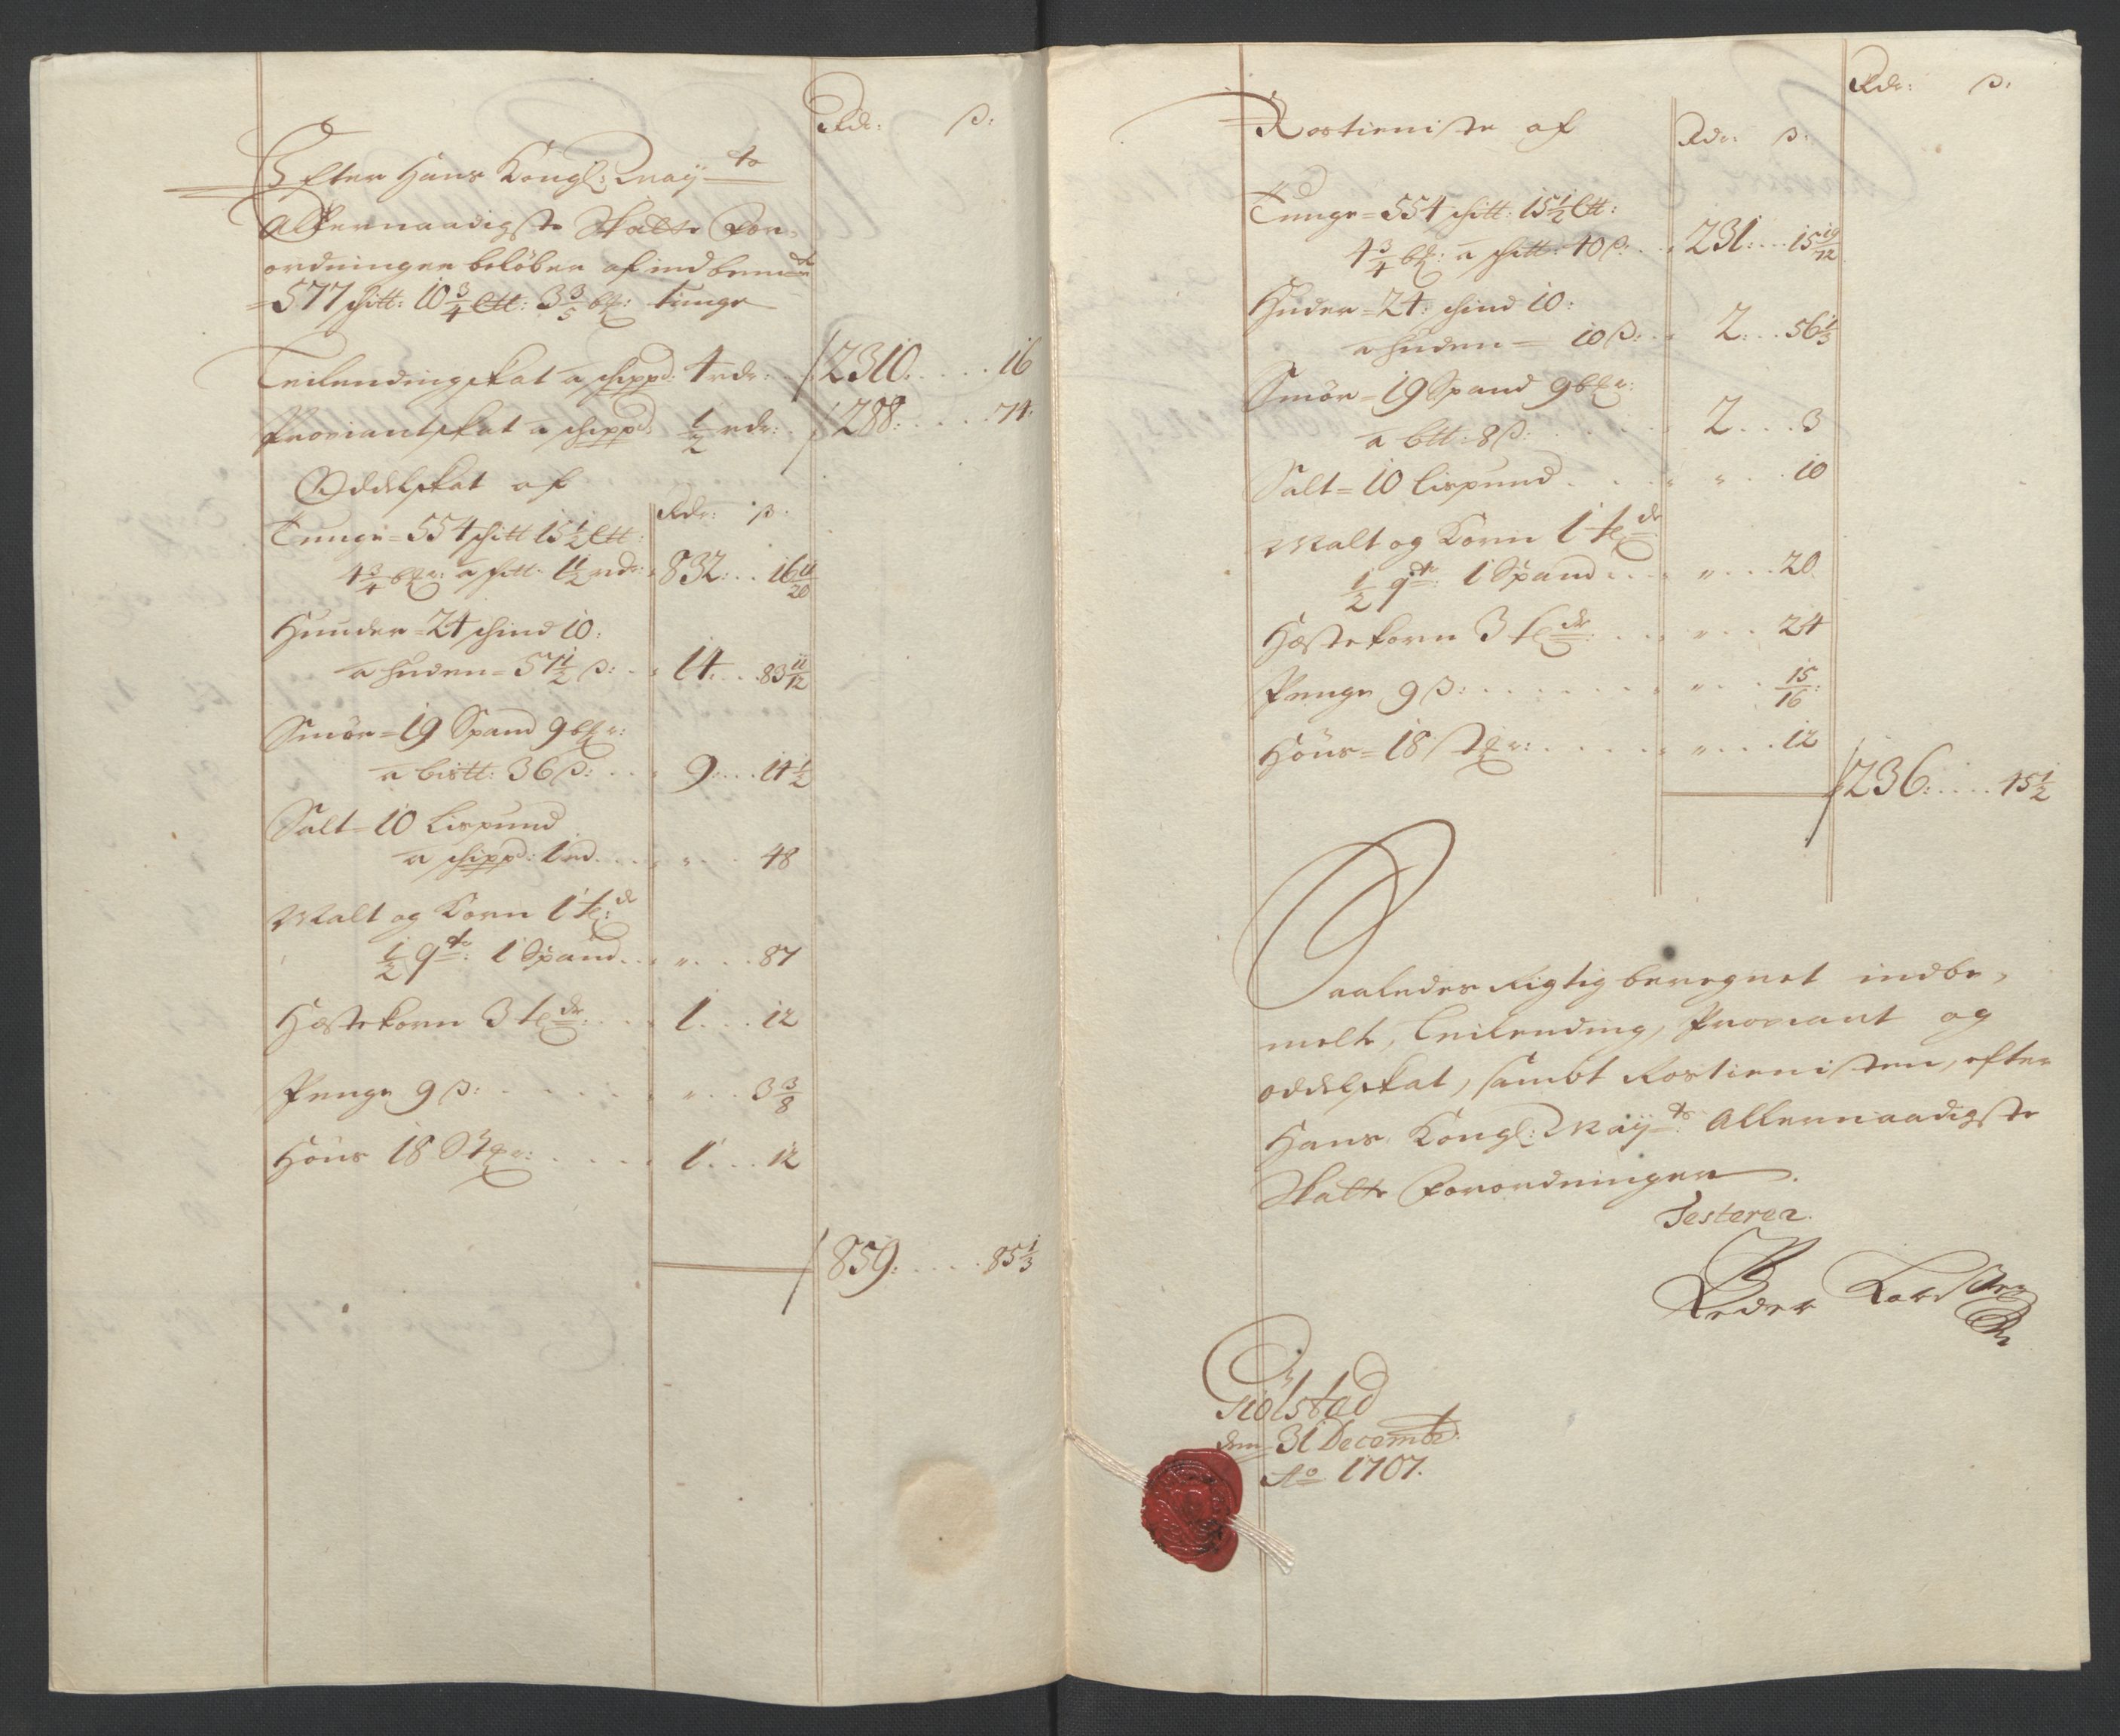 Rdr: ß:
Efter Hans Kongl: May:ts
Allernaadigste Skatte For-
ordninger beløber af indbem:te
577 schtt: 10 3/4 Ltt: 3 3/5 bz: tunge
Leilendingskat a schippd: 4 rdr: 2310. 16
Proviantskat a schippd: 1/2 rdr: 288: 74:
Oddelskat af
Rdr: ß:
Tunge = 554 schtt 15 1/2 Ltt:
4 3/4 bzr: a schtt: 1 1/2 rdr: 832: 16 11/20
Huuder = 24 schind 10:
a huden = 57 1/2 ß: 14: 83 11/12
Smør = 19 Spand 9 bzr:
a bistt: 36 ß: 9: 14 1/2
Salt = 10 Lispund
a schippd: 1 rd " 48
Malt og Korn 1 te:
1/2 q:te: 1 Spand " 87
Hestekorn 3 te:dr: 1 12
Penge 9 ß: " 3 3/8
Høns 18 Stkr: 1 12
859: 85 1/3
Rdr: ß:
Rostieniste af
Rdr: ß:
Tunge = 554 schtt: 15 1/2 Ltt:
4 3/4 bz: a schtt: 40 ß: 231: 15 19/72
Huder = 24: schind 10:
a huden = 10 ß: 2: 56 1/3
Smør = 19 Spand 9 bzr:
a btt: 8 ß: 2 3
Salt = 10 Lispund " 10
Malt og Korn 1 te:dr
1/2 q:te: 1 Spand " 20
Hestekorn 3 te:dr: " 24
Penge 9 ß: " 15/16:
Høns = 18 Stkr: " 12
236: 45 1/2
Saaledes Rigtig beregnet indbe-
melte, Leilending, Proviant og
oddelskat, sambt Rostienisten, efter
Hans Kongl: May:ts Allernaadigste
Skatte Forordninger.
Testerer.
Peder
Giølstad
den 31 Decembr:
Ao 1707.